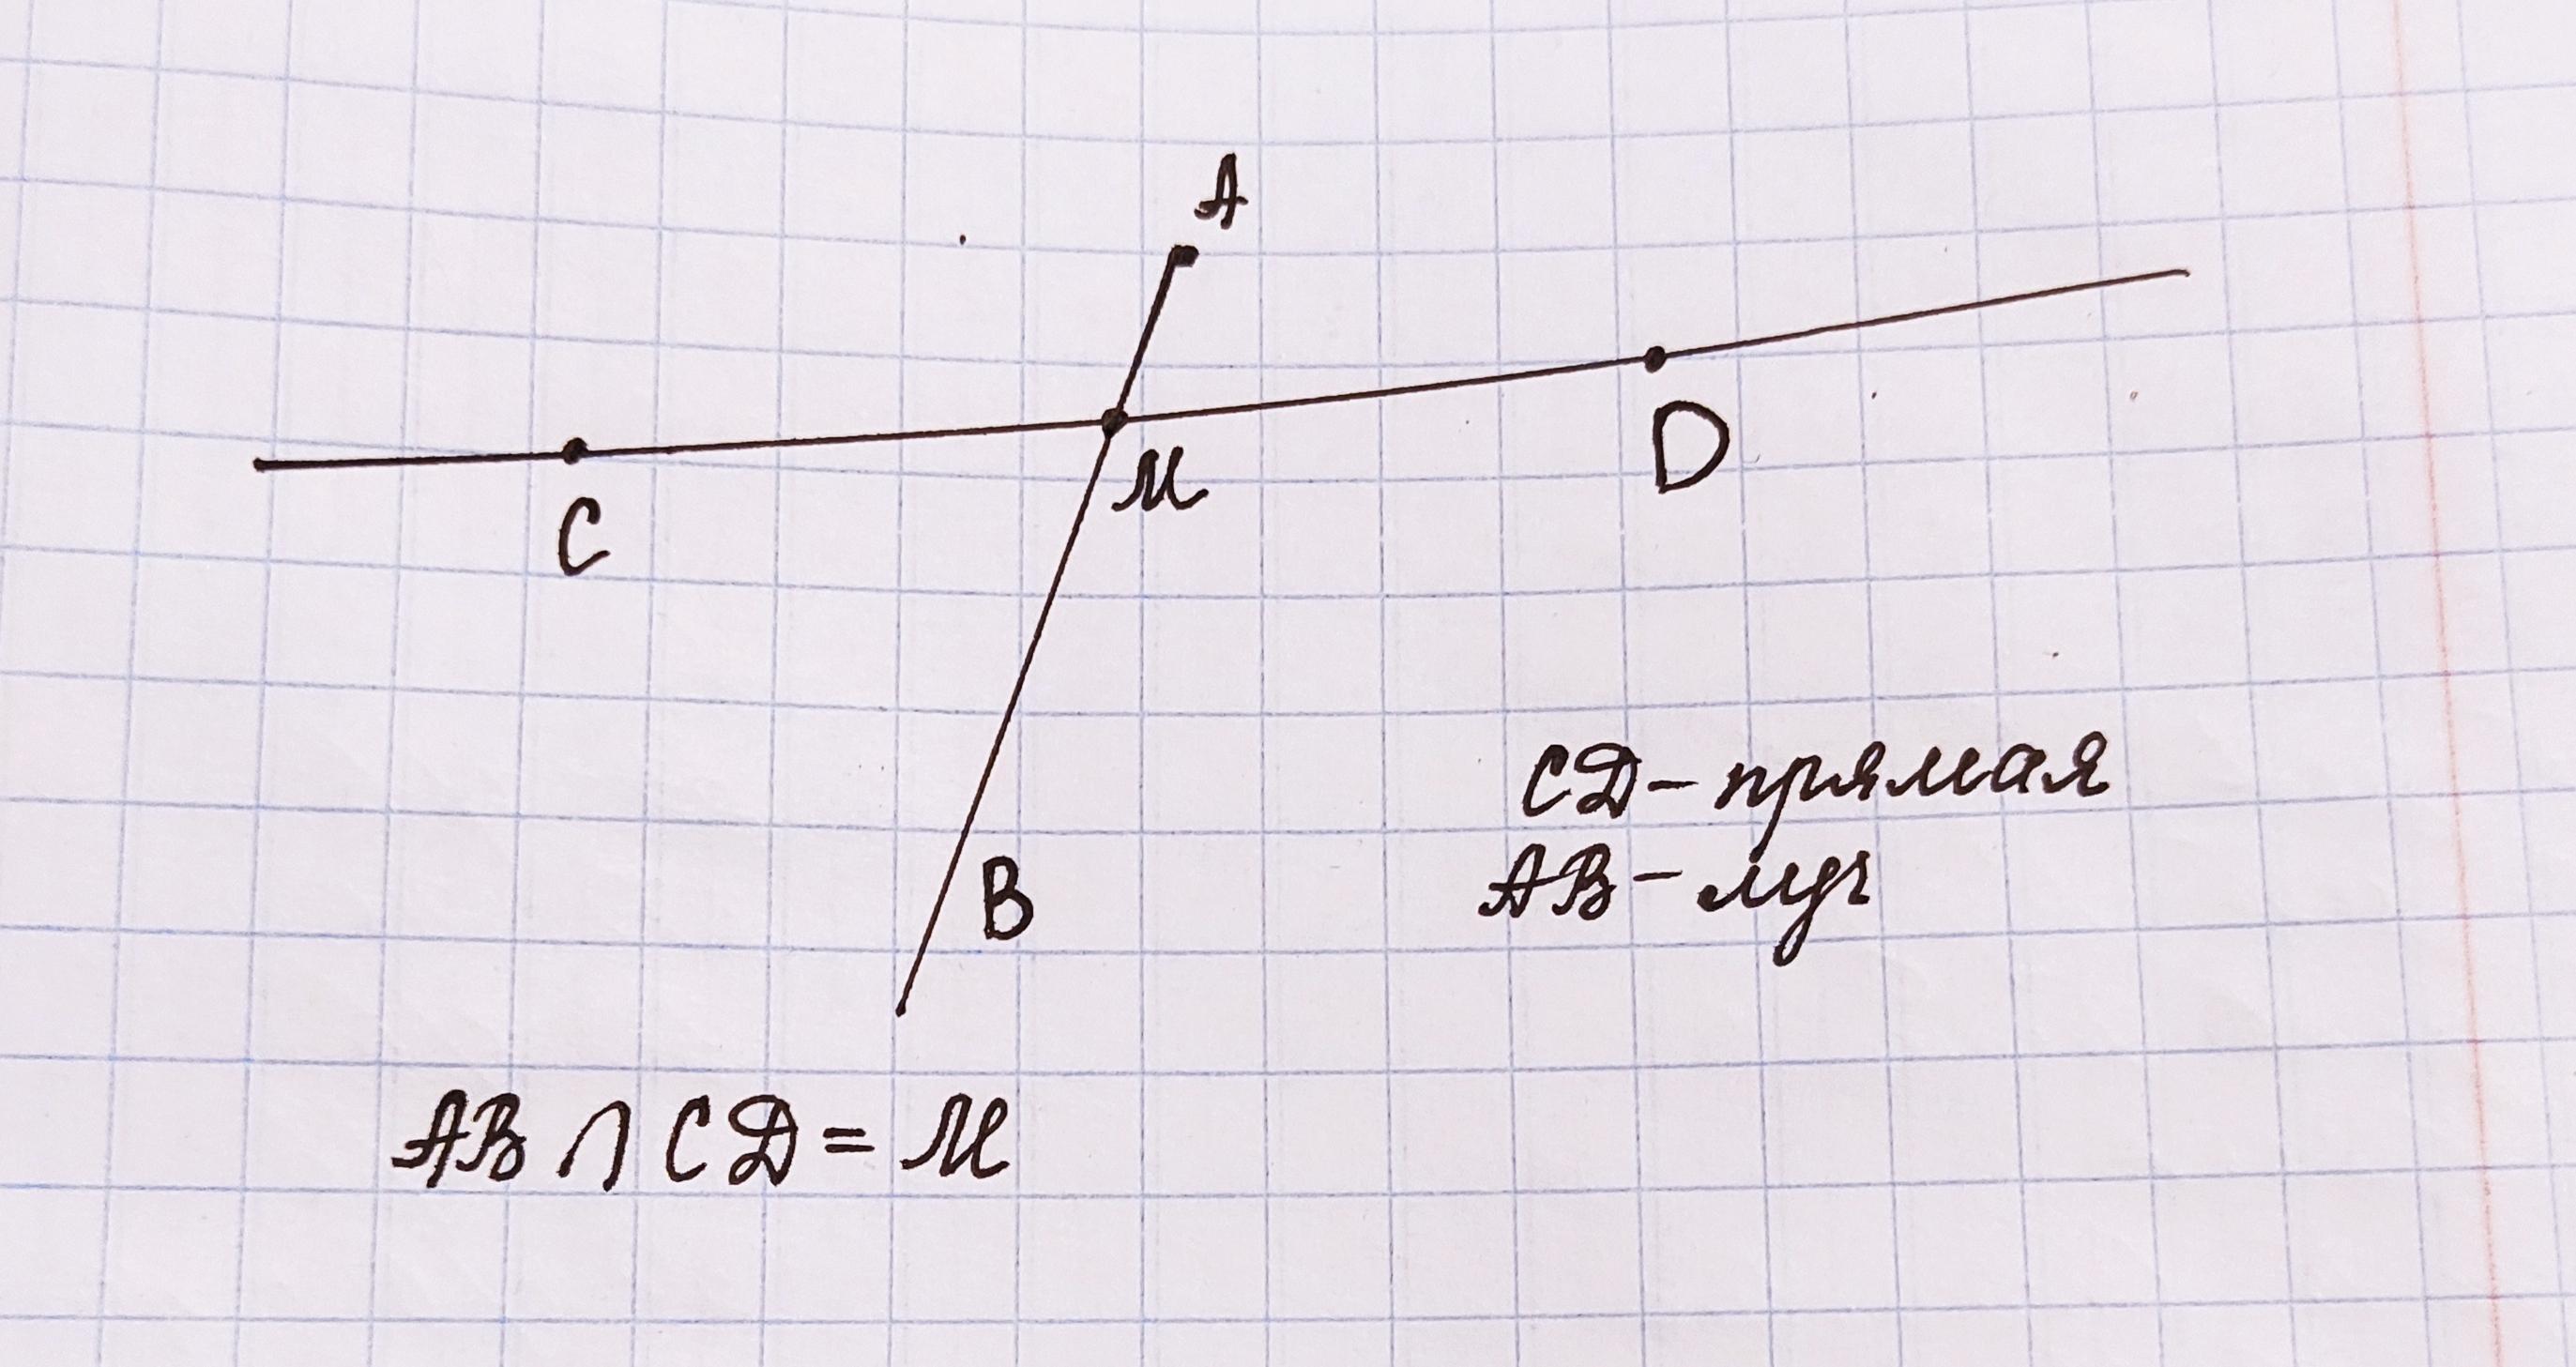 A
M
D
C
B
CD - прямая
AB - луч
AB ∩ CD = M